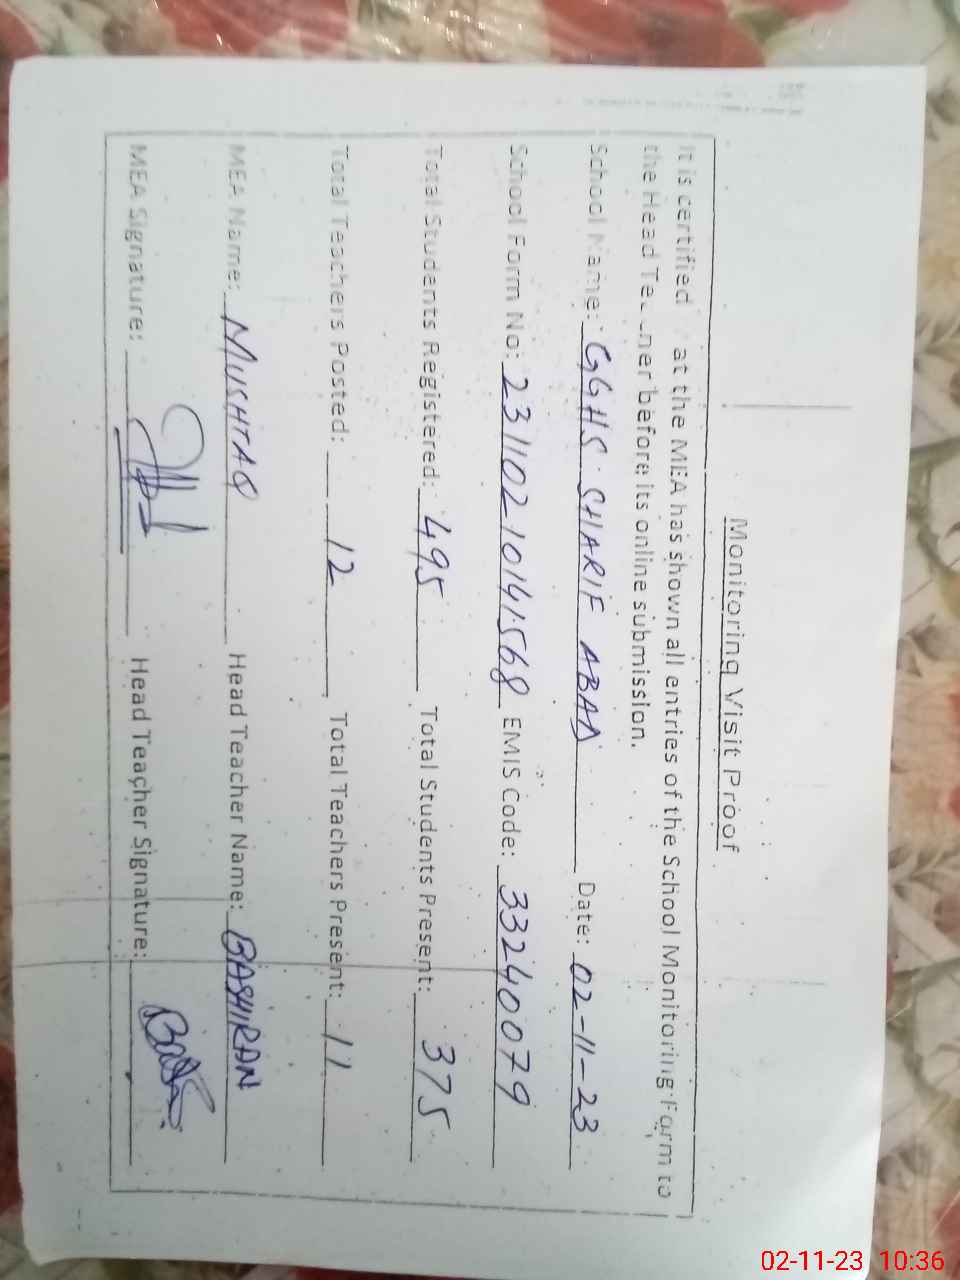 Monitoring Visit Proof
It is certified at the MEA has shown all entries of the School Monitoring Form to
the Head before its online submission.
School Name: GGHS SHARIF ABAD Date: 02-11-23
School Form No: 23110210141568 EMIS Code: 33240079
Total Students Registered: 495 Total Students Present: 375
Total Teachers Posted: 12 Total Teachers Present: 11
MEA Name: MUSHTAQ Head Teacher Name: BASHIRAN
MEA Signature: Head Teacher Signature:
02-11-23 10:36